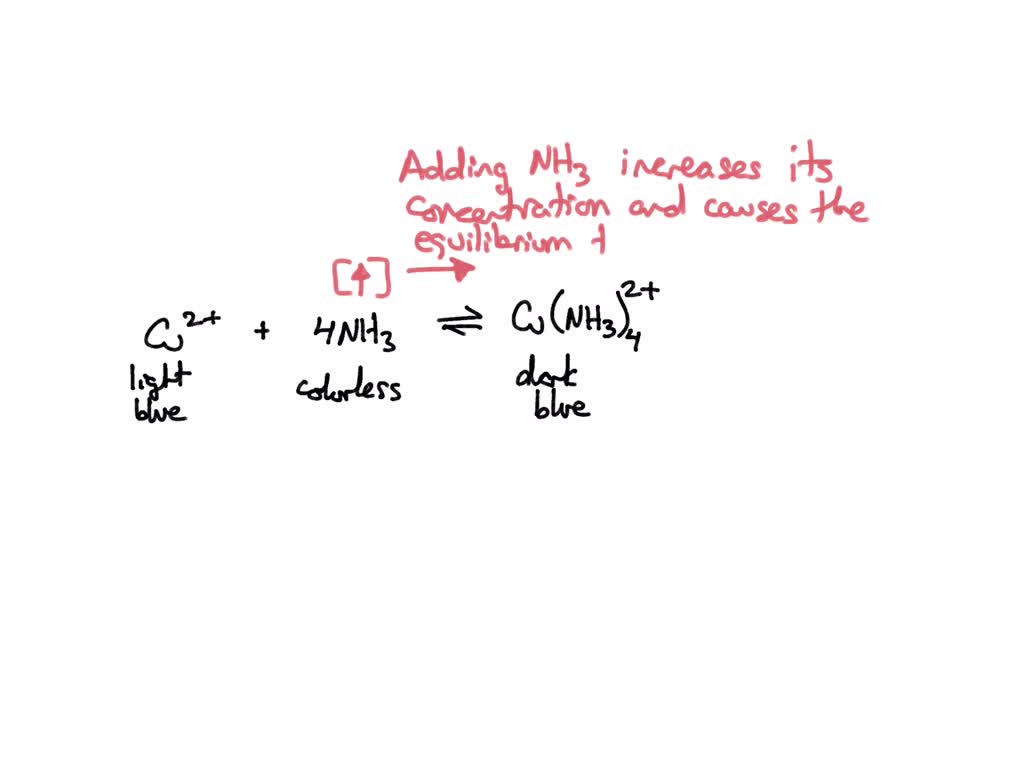 Adding NH3 increases its
concentration and causes the
equilibrium t
[↑] →
Cu2+ + 4NH3 ⇌ Cu(NH3)42+
light colorless dark
blue blue